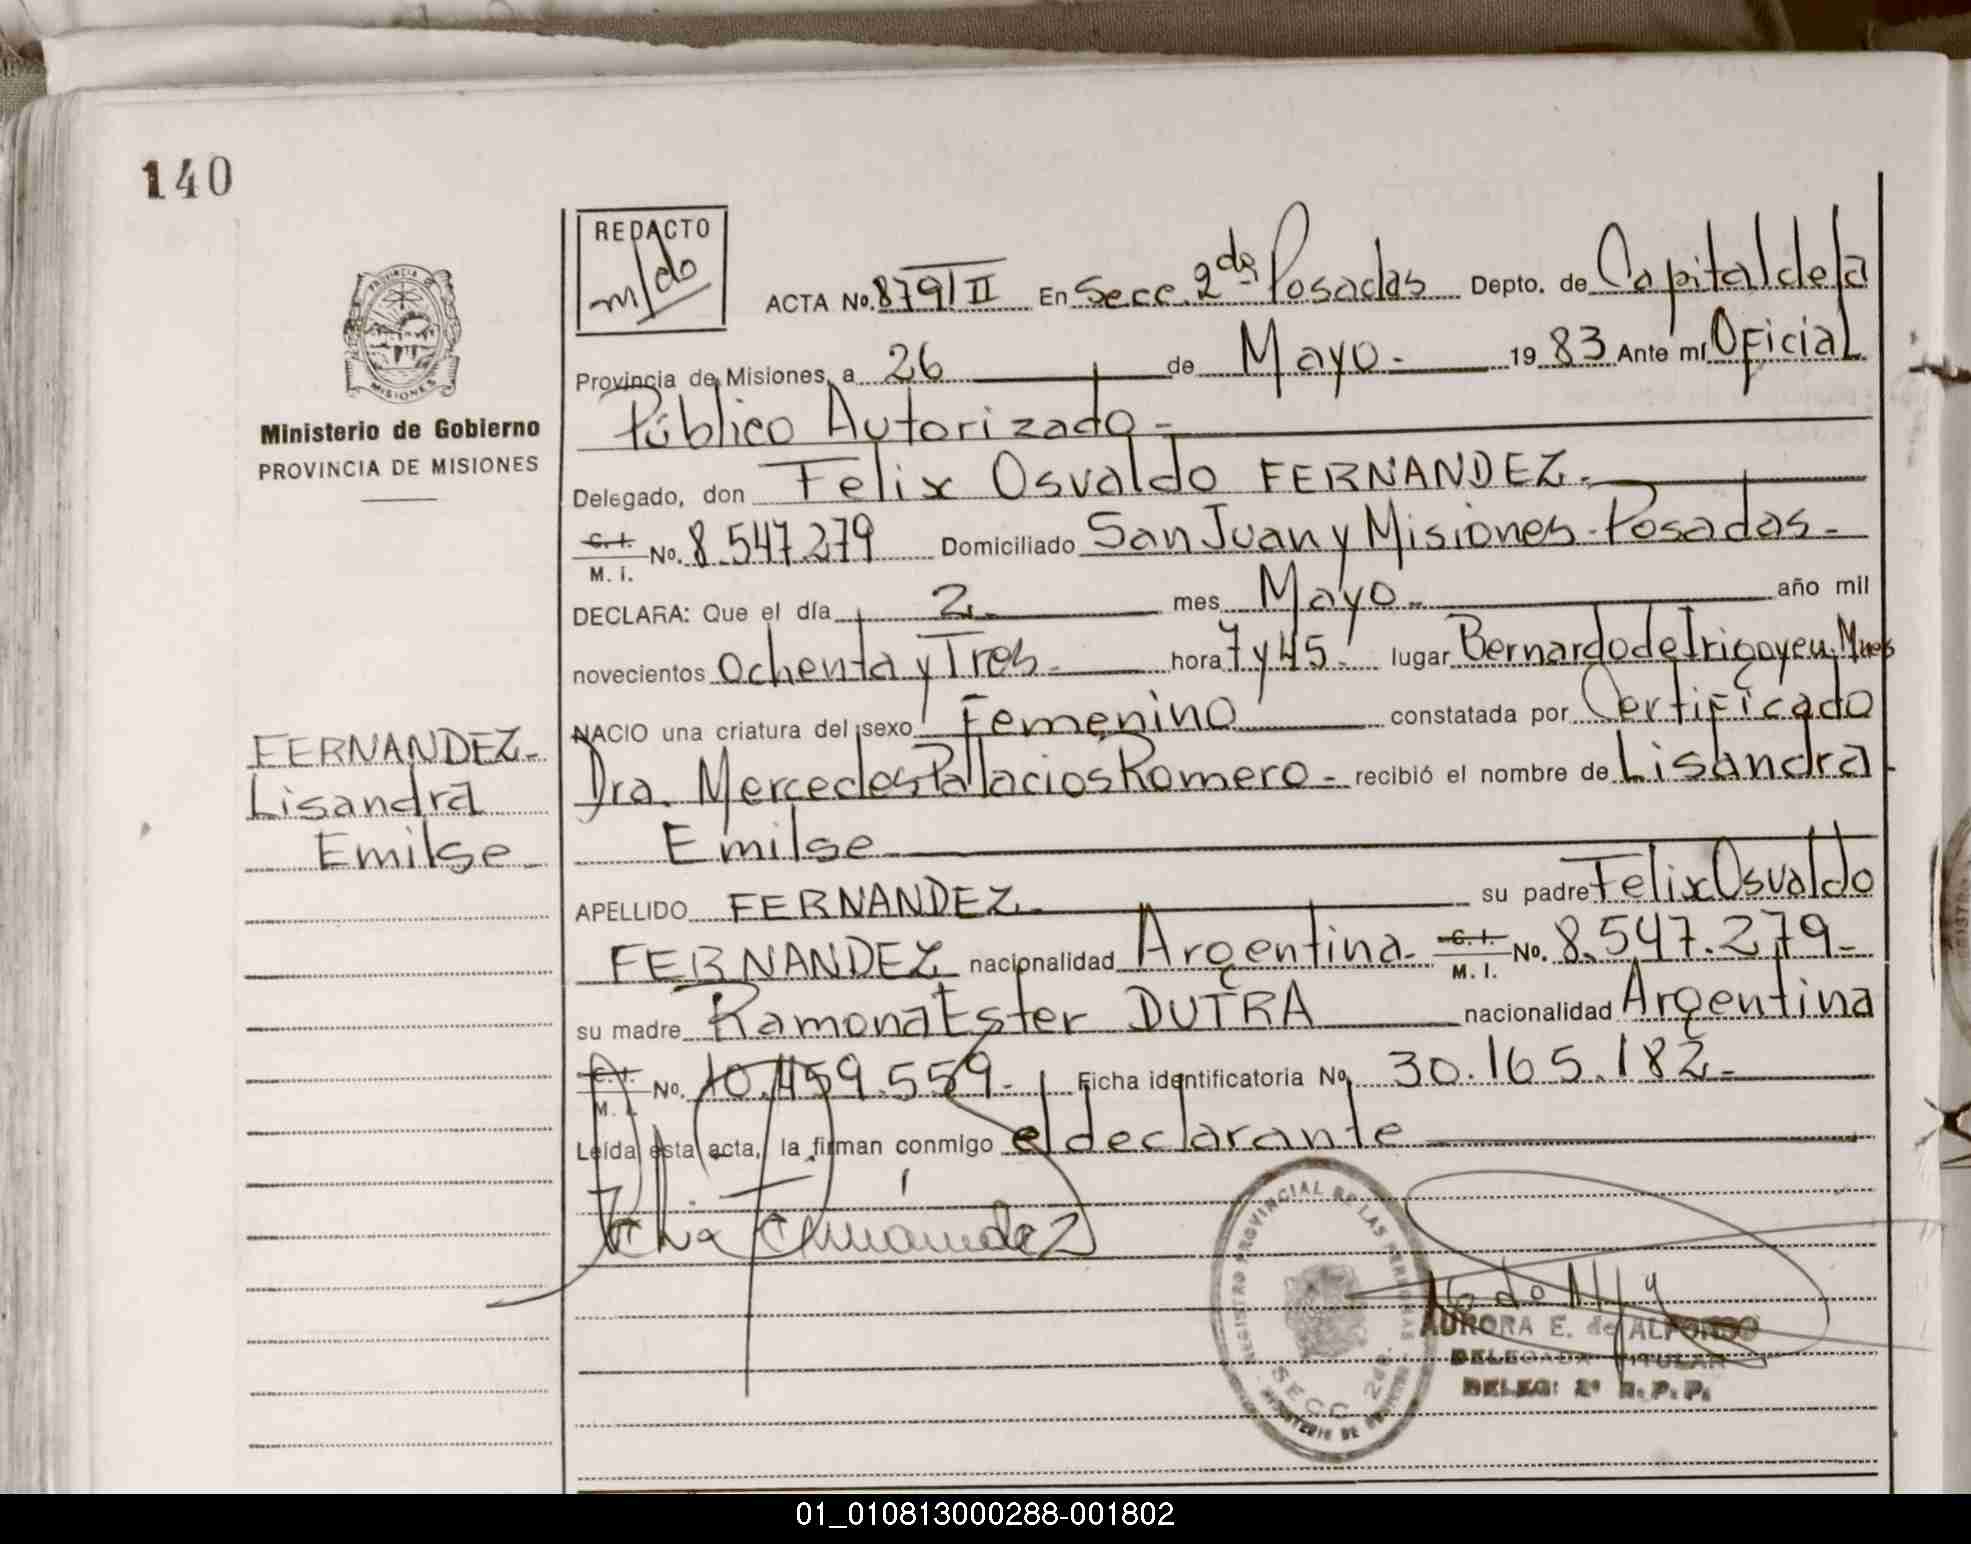 140
REDACTO
m/do
ACTA No. 879/II En Secc. 2da Posadas Depto. de Capital de la
Provincia de Misiones, a 26 de Mayo - 1983 Ante mí Oficial
Público Autorizado -
Delegado, don Felix Osvaldo FERNANDEZ -
C. I. M. I. No. 8.547.279 Domiciliado San Juan y Misiones - Posadas -
DECLARA: Que el día 2 - mes Mayo - año mil
novecientos Ochenta y Tres - hora 7 y 45 - lugar Bernardo de Irigoyen, Mnes
NACIO una criatura del sexo Femenino constatada por Certificado
Dra. Mercedes Pallacios Romero - recibió el nombre de Lisandra
Emilse
APELLIDO FERNANDEZ - su padre Felix Osvaldo
FERNANDEZ nacionalidad Argentina - C. I. M. I. No. 8.547.279 -
su madre Ramona Ester DUTRA nacionalidad Argentina
C. I. M. I. No. 10.459.559 - Ficha identificatoria No. 30.165.182 -
Leída esta acta, la firman conmigo el declarante
Ministerio de Gobierno
PROVINCIA DE MISIONES
FERNANDEZ -
Lisandra
Emilse
PROVINCIA
MISIONES
REGISTRO PROVINCIAL DE LAS PERSONAS
SECC. 2da.
MINISTERIO DE GOBIERNO
AURORA E. de ALFONSO
DELEGADA TITULAR
DELEG: 2ª R. P. P.
01_010813000288-001802